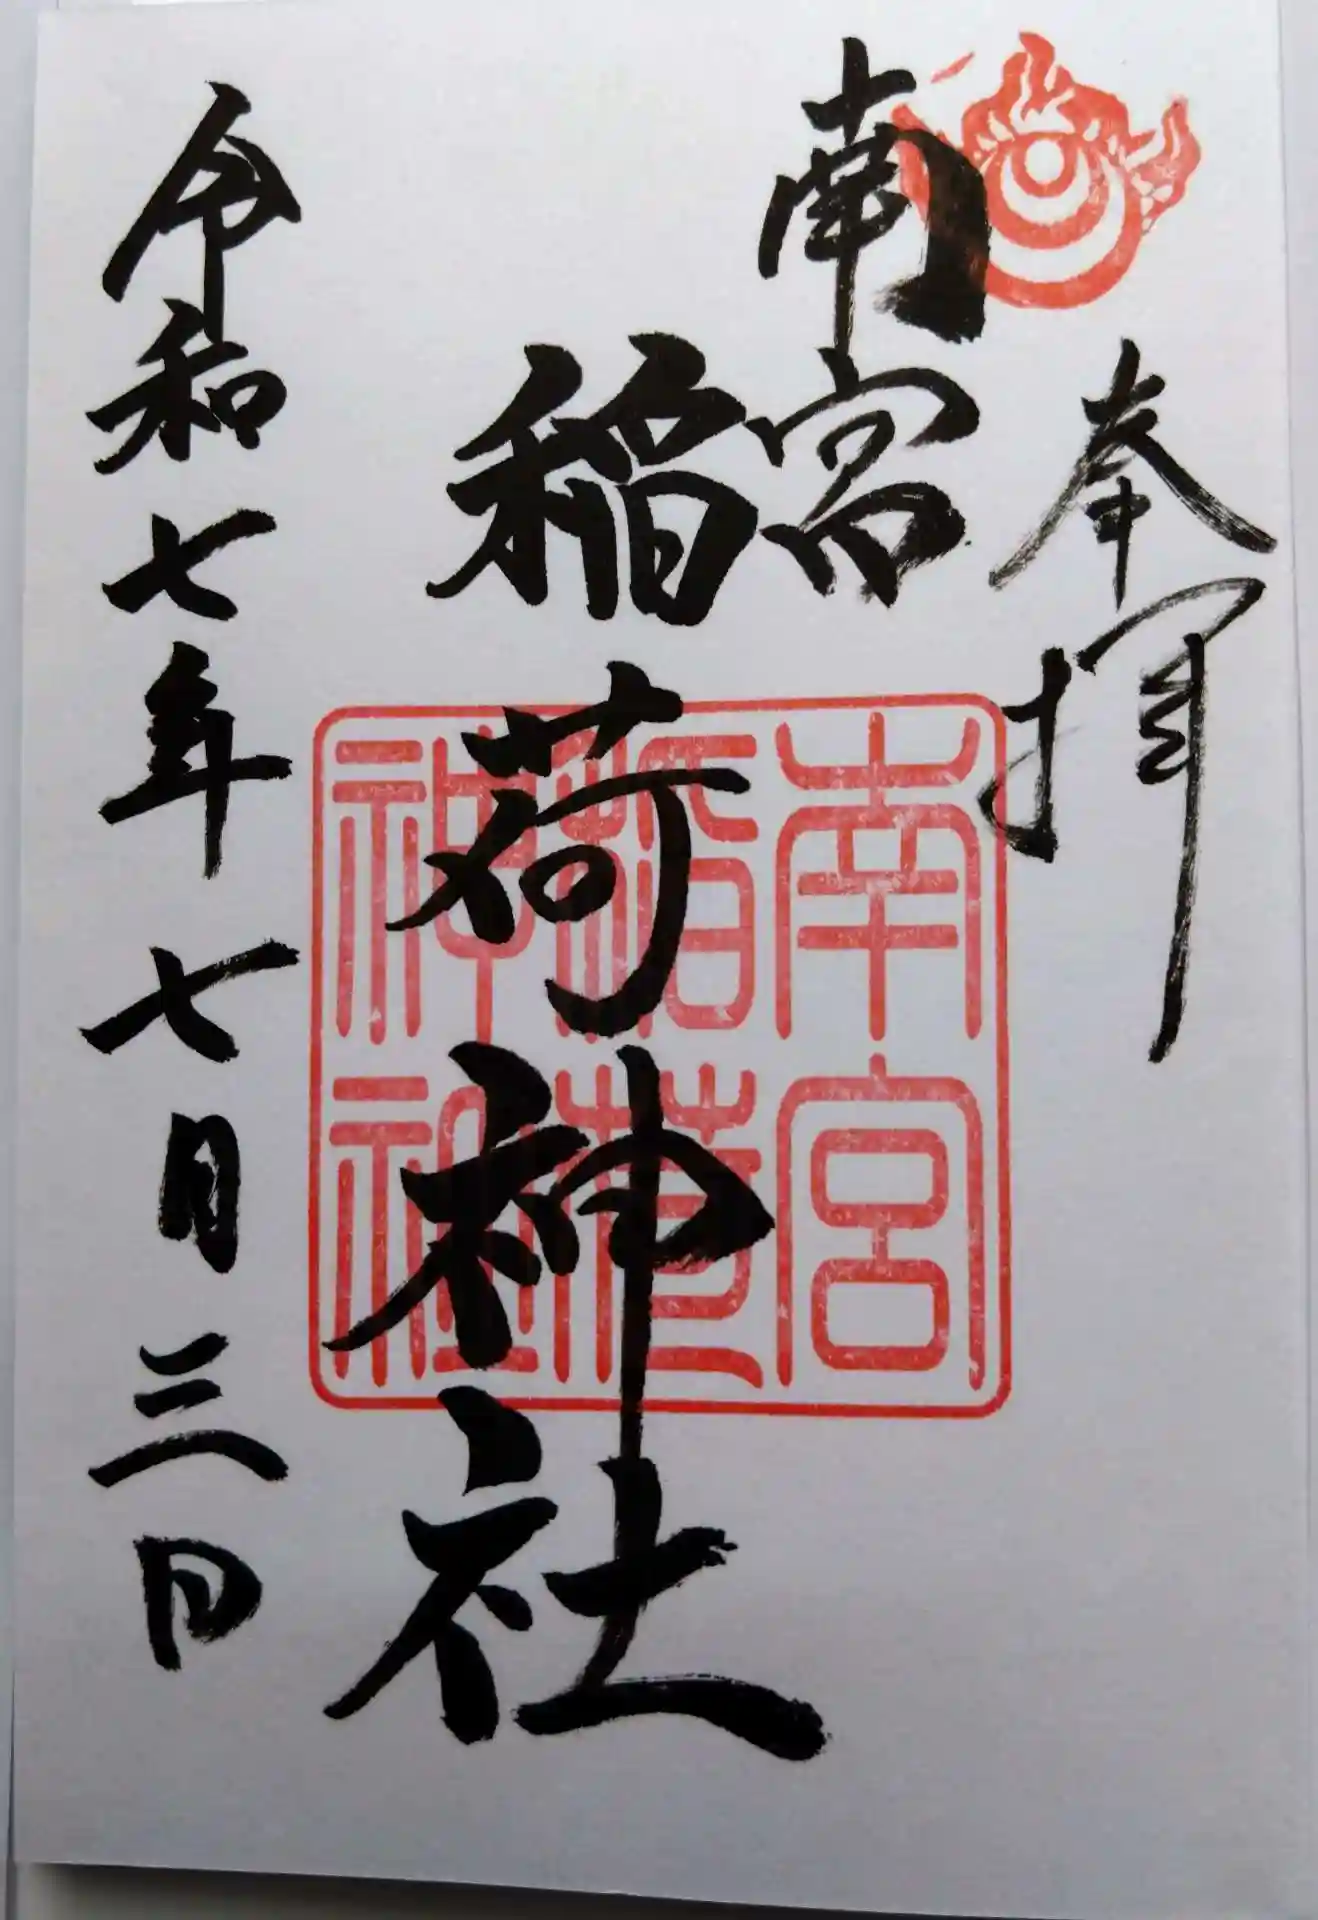 奉拝
南宮
稲荷神社
令和七年七月三日
南宮
稲荷
神社